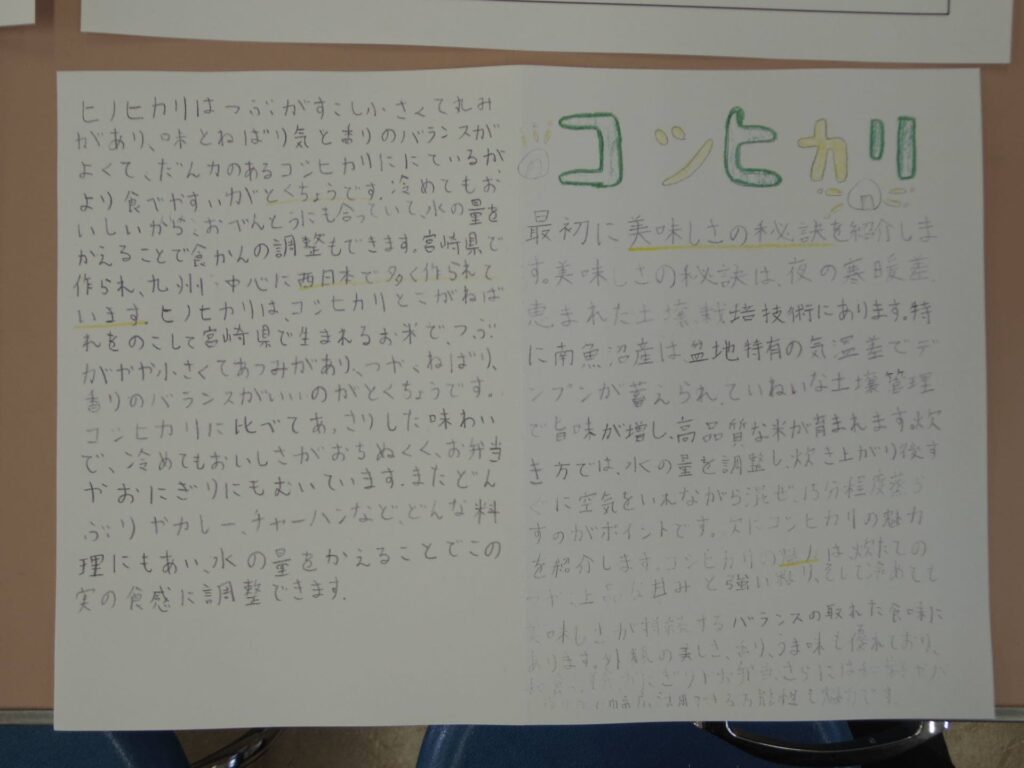 ヒノヒカリはつぶがすこし小さくて丸み
があり、味とねばり気と香りのバランスが
よくて、だん力のあるコシヒカリににているが、
より食べやすいがとくちょうです。冷めてもお
いしいから、おべんとうにも合っていて、水の量を
かえることで食かんの調整もできます。宮崎県で
作られ、九州・中心に西日本で多く作られて
います。ヒノヒカリは、コシヒカリとこがねば
れをのこして宮崎県で生まれるお米で、つぶ
がやや小さくてあつみがあり、つや、ねばり、
香りのバランスがいいのがとくちょうです。
コシヒカリに比べてあっさりした味わい
で、冷めてもおいしさがおちぬくく、お弁当
やおにぎりにもむいています。またどん
ぶりやカレー、チャーハンなど、どんな料
理にもあい、水の量をかえることでこの
実の食感に調整できます。
コシヒカリ
最初に美味しさの秘訣を紹介しま
す。美味しさの秘訣は、夜の寒暖差、
恵まれた土壌、栽培技術にあります。特
に南魚沼産は盆地特有の気温差でデ
ンプンが蓄えられ、ていねいな土壌管理
で旨味が増し、高品質な米が育まれます。炊
き方では、水の量を調整し、炊き上がり後す
ぐに空気をいれながら混ぜ、15分程度蒸ら
すのがポイントです。次にコシヒカリの魅力
を紹介します。コシヒカリの魅力は、炊たての
つや、上品な甘みと強い粘り、そして冷めても
美味しさが持続するバランスの取れた食味に
あります。外観の美しさ、香り、うま味も優れており、
おにぎりやお弁当、さらには
幅広く活用できる万能性も魅力です。